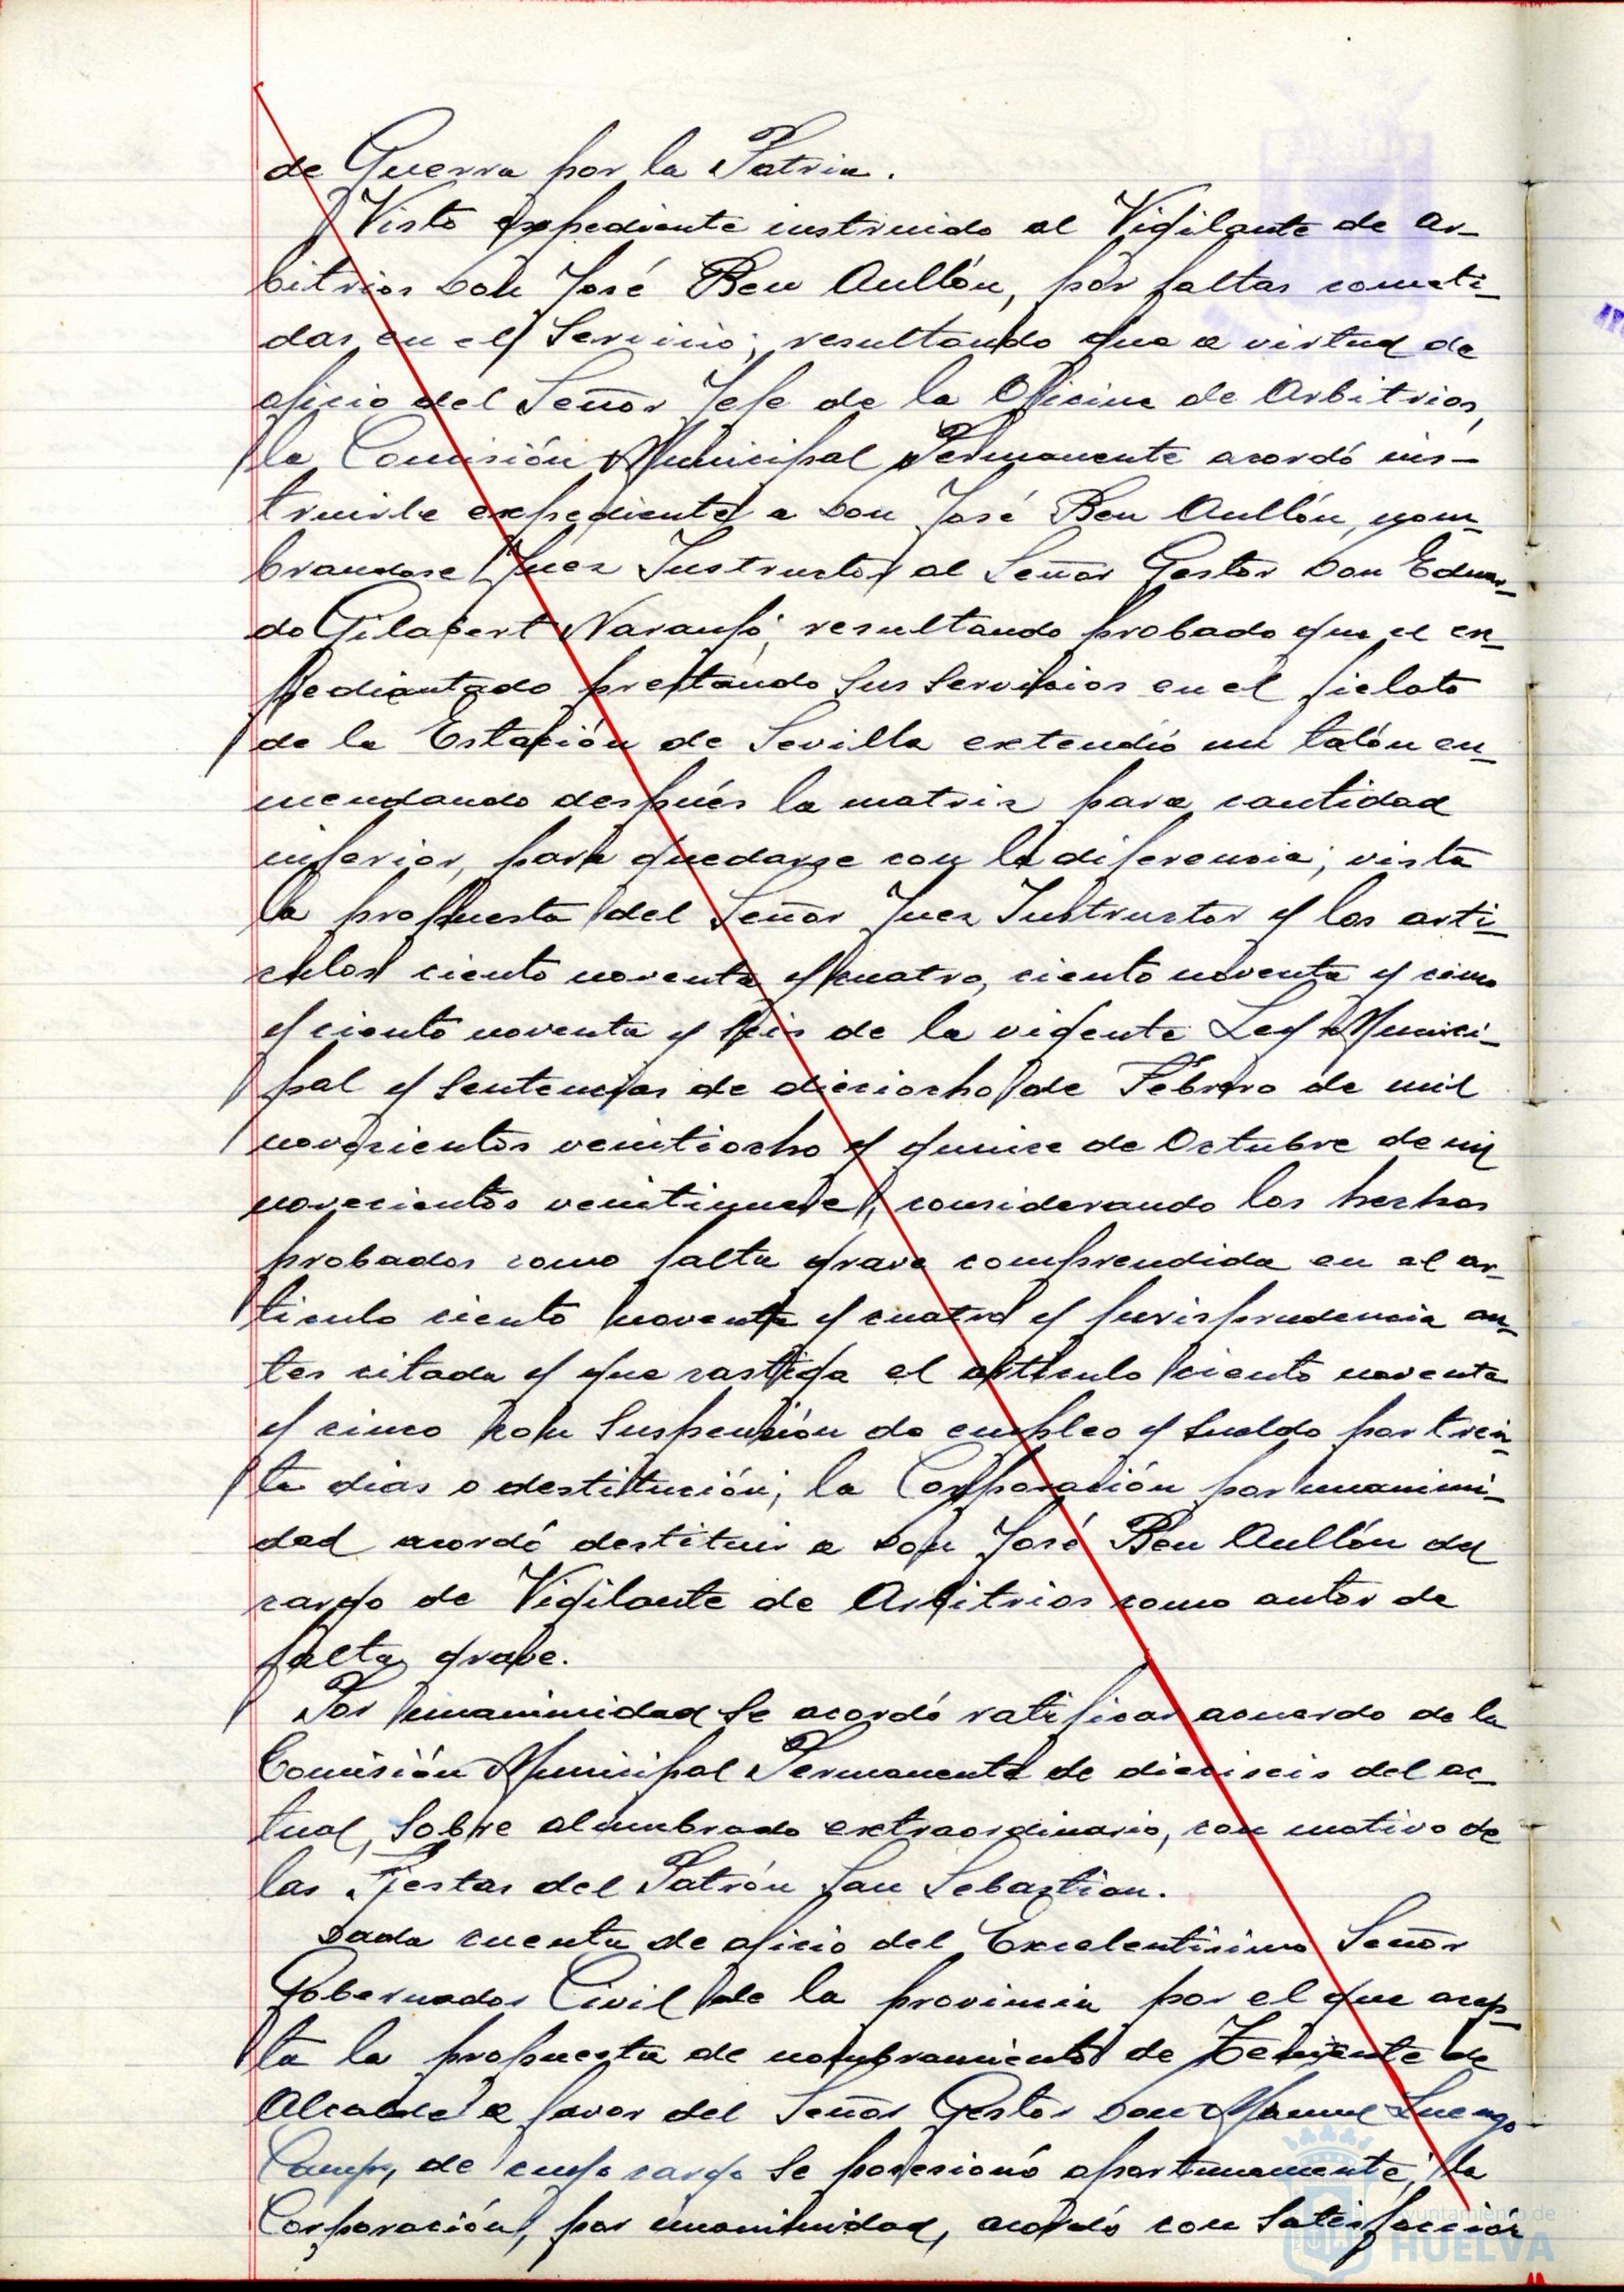 de Guerra por la Patria.
Visto expediente instruido al Vigilante de Ar-
bitrios Don José Beu Aullón, por faltas cometi-
das en el Servicio; resultando que a virtud de
oficio del Señor Jefe de la Oficina de Arbitrios,
la Comisión Municipal Permanente acordó ins-
truirle expediente a Don José Beu Aullón, nom-
brandose Juez Instructor al Señor Gestor Don Eduar-
do Gilabert Naranjo; resultando probado que el ex-
pedientado prestando sus servicios en el fielato
de la Estación de Sevilla extendió un talón en-
mendando después la matriz para cantidad
inferior, para quedarse con la diferencia; vista
la propuesta del Señor Juez Instructor y los arti-
culos ciento noventa y cuatro, ciento noventa y cinco
y ciento noventa y seis de la vigente Ley Munici-
pal y Sentencias de dieciocho de Febrero de mil
novecientos veintiocho y quince de Octubre de mil
novecientos veintinueve, considerando los hechos
probados como falta grave comprendida en el ar-
ticulo ciento noventa y cuatro y jurisprudencia an-
tes citada y que castiga el articulo ciento noventa
y cinco con Suspensión de empleo y Sueldo por trein-
ta dias o destitución; la Corporación por unanimi-
dad acordó destituir a Don José Beu Aullón del
cargo de Vigilante de Arbitrios como autor de
falta grave.
Por unanimidad se acordó ratificar acuerdo de la
Comisión Municipal Permanente de dieciseis del ac-
tual, sobre alumbrado extraordinario, con motivo de
las Fiestas del Patrón San Sebastian.
Dada cuenta de oficio del Excelentisimo Señor
Gobernador Civil de la provincia por el que acep-
ta la propuesta de nombramiento de Teniente de
Alcalde a favor del Señor Gestor Don Manuel Luengo
de cuyo cargo se posesionó oportunamente; la
Corporación, por unanimidad, acordó con Satisfacción
Ayuntamiento de
HUELVA